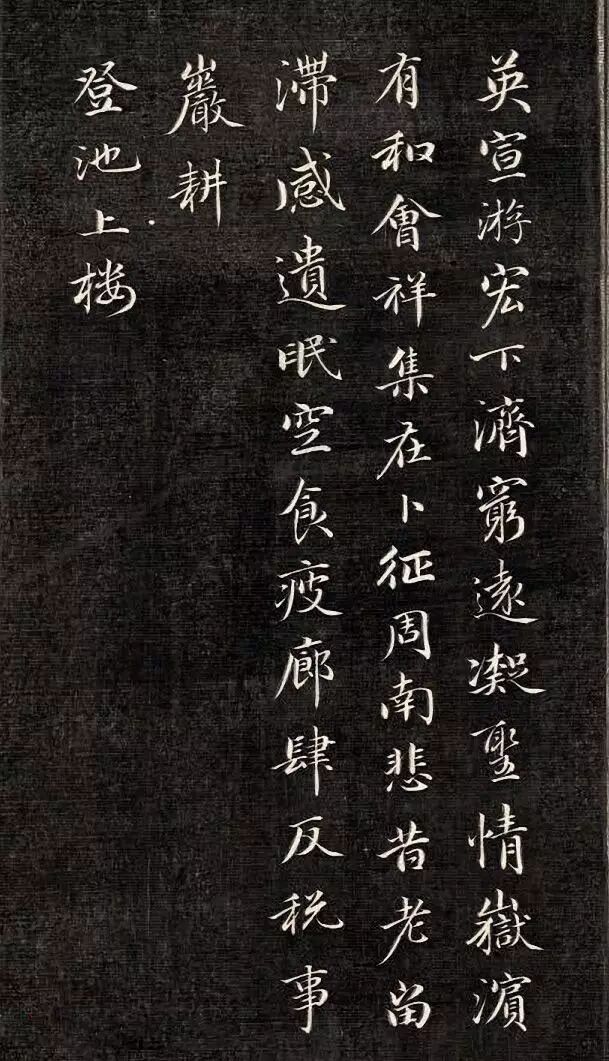 英宣游宏下濟窮遠凝聖情嶽濵
有和會祥集在卜征周南悲昔老畄
滯感遺眠空食疲廊肆反税事
巖耕
登池上楼